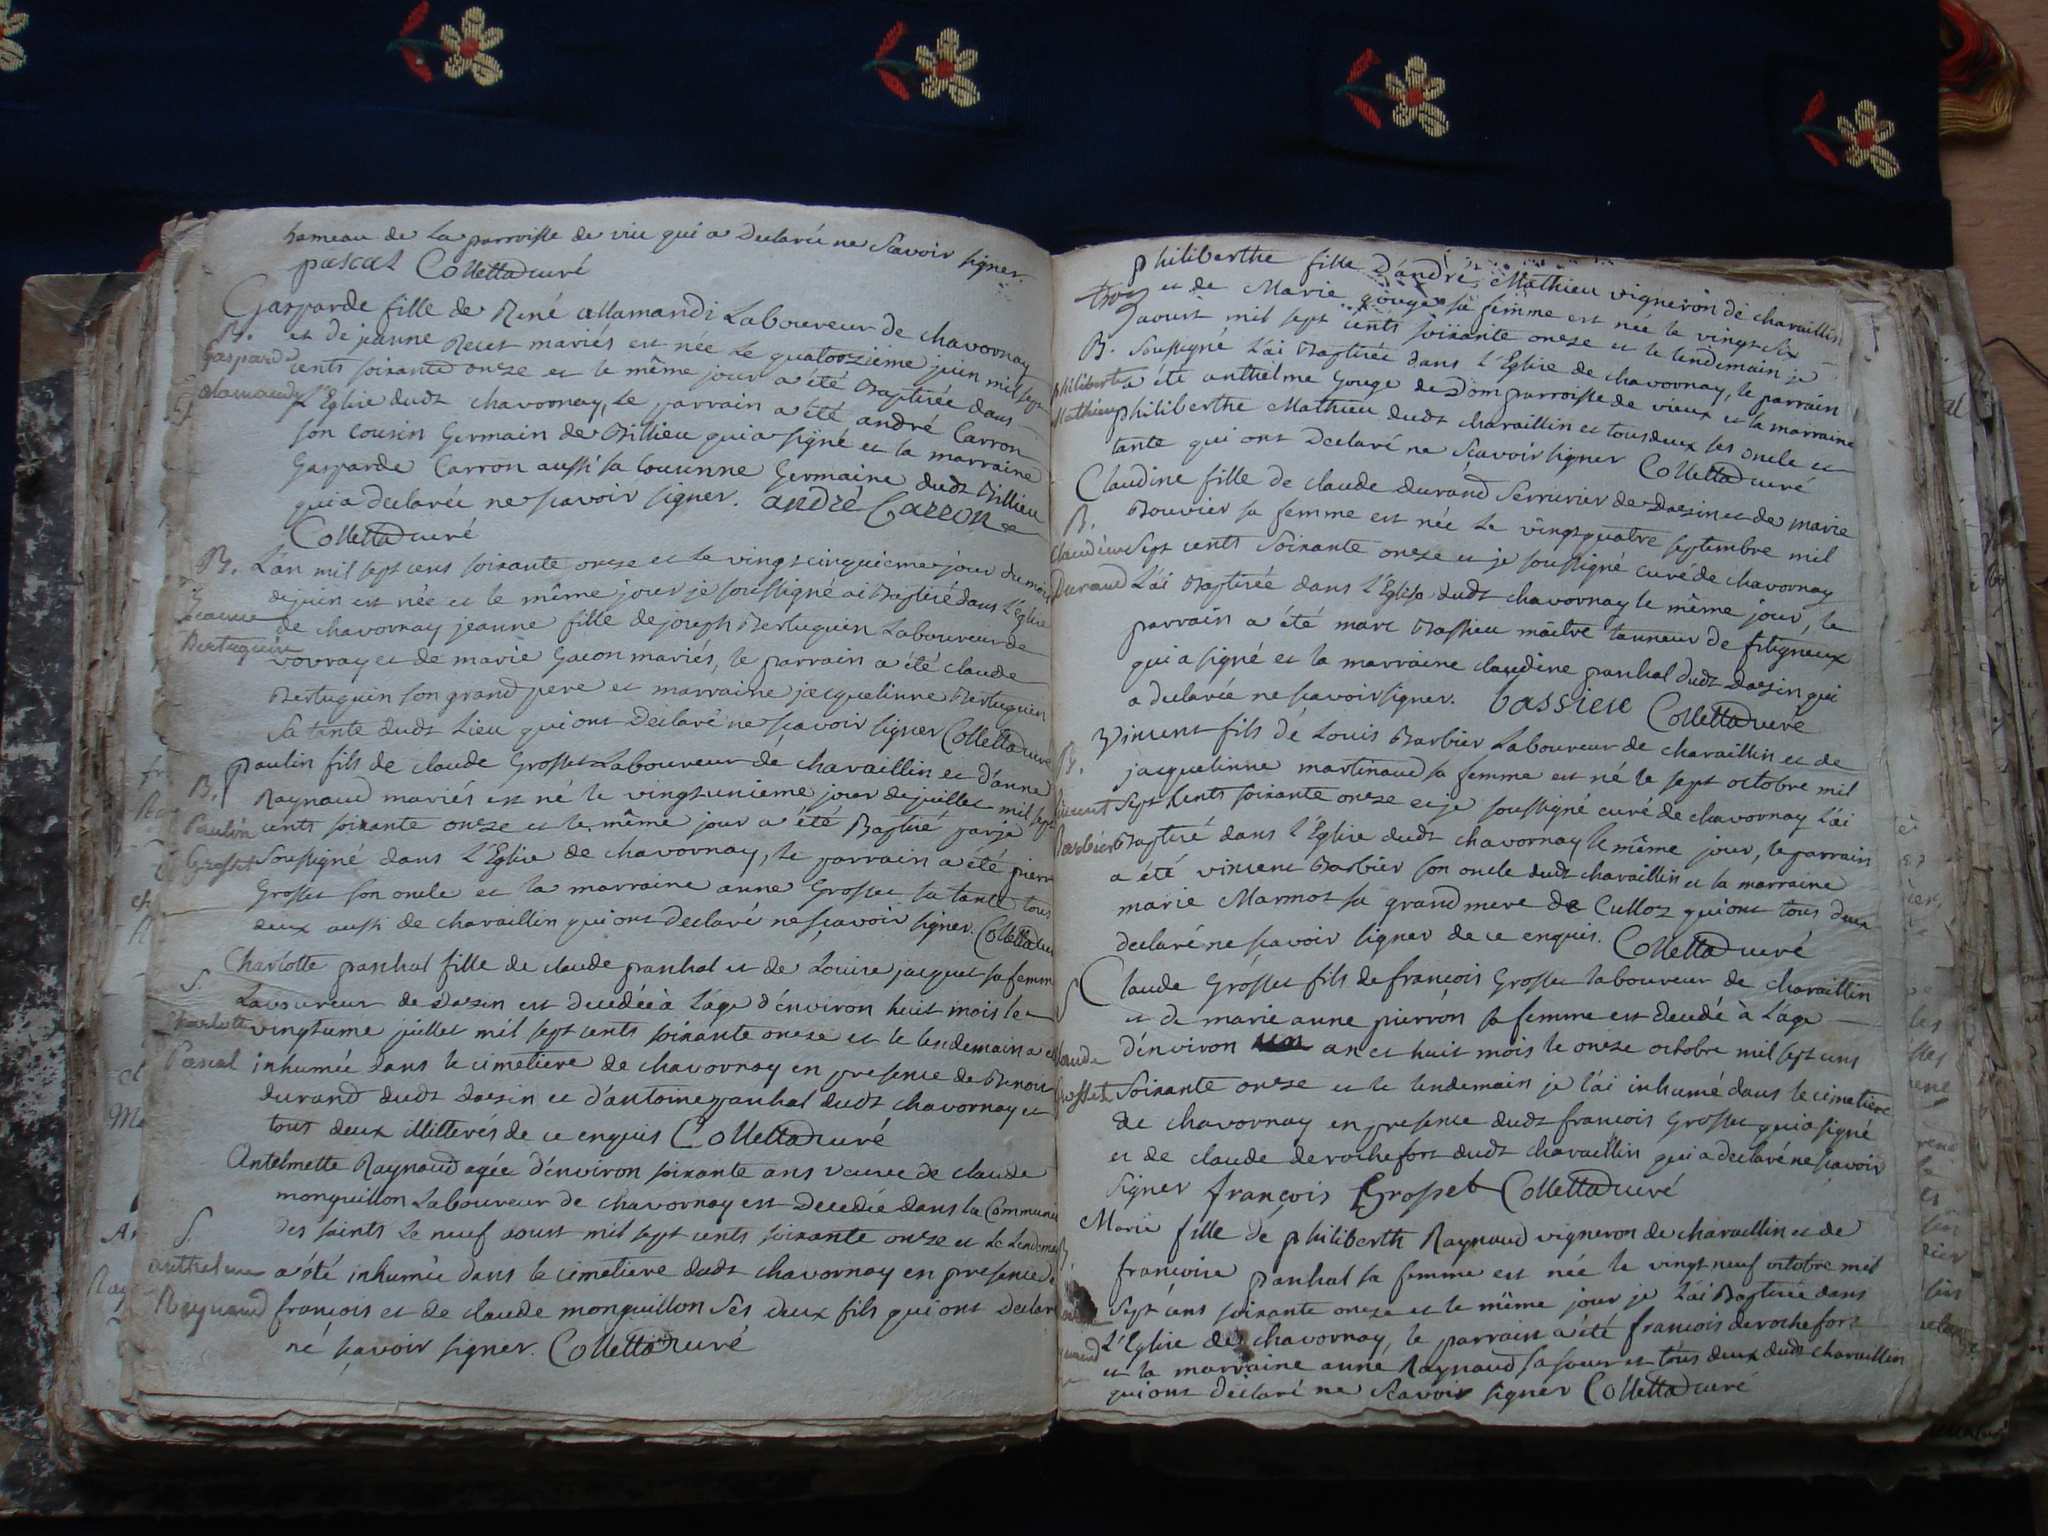 hameau de la parroisse de vieu qui a declaré ne scavoir signer.
pascal Collettad curé
Gasparde fille de René allamandi Laboureur de chavornay
B. et de jeanne Recet mariés est née le quatorzieme juin mil sept
Gasparde cents soixante onze et le même jour a été Baptisée dans
alamandy l'Eglise dudt chavornay, le parrain a été andré Carron
son cousin Germain de Billieu qui a signé et la marraine
Gasparde Carron aussi sa cousinne Germaine dudt Billieu
qui a declarée ne scavoir signer. andré Carron
Collettad curé
B. L'an mil sept cens soixante onze et le vingt cinquieme jour du mois
de juin est née et le même jour je soussigné ai Baptisé dans l'Eglise
Jeanne de chavornay jeanne fille de joseph Bertuguin Laboureur de
Bertuguin vovray et de marie Gacon mariés, le parrain a été claude
Bertuguin son grand pere et marraine jacquelinne Bertuguin
sa tante dudt Lieu qui ont declaré ne scavoir signer Collettad curé
paulin fils de claude Grosset Laboureur de chavaillin et d'anne
B. Raynaud mariés est né le vingt unieme jour de juillet mil sept
Paulin cents soixante onze et le même jour a été Baptisé par je
Grosset soussigné dans l'Eglise de chavornay, le parrain a été pierre
Grosset son oncle et la marraine anne Grosset sa tante tous
deux aussi de chavaillin qui ont declaré ne scavoir signer. Collettad curé
Charlotte paschal fille de claude paschal et de Louise jacquet sa femme
S. Laboureur de dazin est decedée à l'age d'environ huit mois le
Charlotte vingt ume juillet mil sept cents soixante onze et le lendemain a été
Pascal inhumée dans le cimetiere de chavornay en presence de Benoit
durand dudt dazin et d'antoine paschal dudt chavornay et
tous deux illitterés de ce enquis Collettad curé
Antelmette Raynaud agée d'environ soixante ans veuve de claude
monguillon Laboureur de chavornay est decedée dans la Communion
S. des saints le neuf aoust mil sept cents soixante onze et le lendemain
anthelme a été inhumée dans le cimetiere dudt chavornay en presence de
Raynaud françois et de claude monguillon ses deux fils qui ont declaré
ne scavoir signer. Collettad curé
philiberthe fille d'andré Mathieu vigneron de chavaillin
et de Marie gouge sa femme est née le vingt six
aoust mil sept cents soixante onze et le lendemain je
B. soussigné l'ai Baptisée dans l'Eglise de chavornay, le parrain
philiberthe a été anthelme Gouge de Dom parroisse de vieux et la marraine
Mathieu philiberthe Mathieu dudt chavaillin et tous deux ses oncle et
tante qui ont declaré ne scavoir signer Collettad curé
Claudine fille de claude durand serrurier de dazin et de marie
B. Bouvier sa femme est née le vingt quatre septembre mil
Claudine sept cents soixante onze et je soussigné curé de chavornay
Durand l'ai Baptisée dans l'Eglise dudt chavornay le même jour, le
parrain a été marc Bassieu maître tanneur de fitigneux
qui a signé et la marraine claudine paschal dudt dazin qui
a declarée ne scavoir signer. bassieu Collettad curé
vincent fils de Louis Barbier Laboureur de chavaillin et de
B. jacquelinne martinaud sa femme est né le sept octobre mil
Vincent sept cents soixante onze et je soussigné curé de chavornay l'ai
Barbier Baptisé dans l'Eglise dudt chavornay le même jour, le parrain
a été vincent Barbier son oncle dudt chavaillin et la marraine
marie Marmot sa grand mere de Culloz qui ont tous deux
declaré ne scavoir signer de ce enquis. Collettad curé
S Claude Grosset fils de françois Grosset laboureur de chavaillin
et de marie anne pierron sa femme est decedé à l'age
Claude d'environ un an et huit mois le onze octobre mil sept cens
Grosset soixante onze et le lendemain je l'ai inhumé dans le cimetiere
de chavornay en presence dudt françois Grosset qui a signé
et de claude de rochefort dudt chavaillin qui a declaré ne scavoir
signer françois Grosset Collettad curé
Marie fille de philiberth Raynaud vigneron de chavaillin et de
B. françoise paschal sa femme est née le vingt neuf octobre mil
sept cens soixante onze et le même jour je l'ai Baptisée dans
l'Eglise de chavornay, le parrain a été françois de rochefort
et la marraine anne Raynaud sa soeur et tous deux dudt chavaillin
qui ont declaré ne scavoir signer Collettad curé